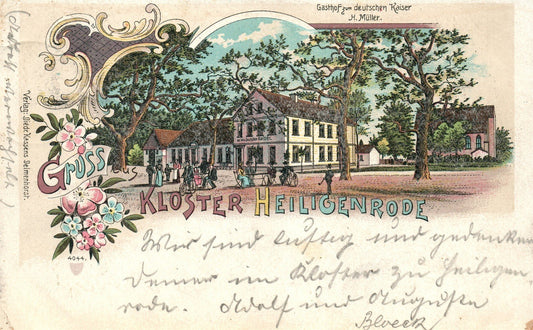 Gasthof zum deutschen Kaiser
H. Müller.
Gruss aus
Kloster Heiligenrode
Verlag: Diedr. Kaspens Delmenhorst.
4044.
Wir sind lustig und gedenken
Deiner im Kloster zu Heiligen-
rode. Adolf und Auguste
Bloeck